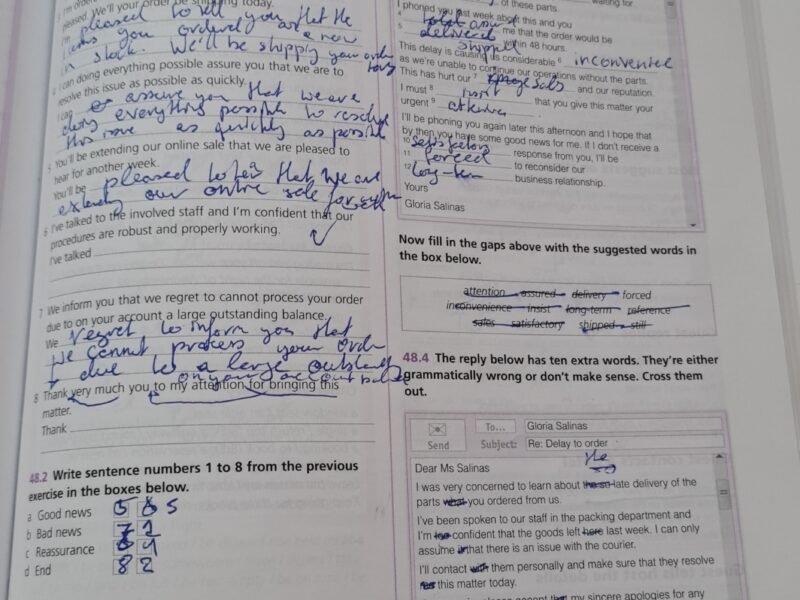 pleased. We'll your order be shipping today.
I'm pleased to tell you that the
items you ordered are now
in stock. We'll be shipply your order
today
I can doing everything possible assure you that we are to
resolve this issue as possible as quickly.
I can assure you that we are
doing everything possible to resolve
this issue as quickly as possible
5 You'll be extending our online sale that we are pleased to
hear for another week.
You'll be pleased to hear that we are
our online sale for
6 I've talked to the involved staff and I'm confident that our
procedures are robust and properly working.
I've talked
7 We inform you that we regret to cannot process your order
due to on your account a large outstanding balance.
We regret to inform you that
we cannot process your order
due to a large
on your account balance
8 Thank very much you to my attention for bringing this
matter.
Thank
48.2 Write sentence numbers 1 to 8 from the previous
exercise in the boxes below.
a Good news 5
b Bad news 7 1
c Reassurance 4
d End 8 2
waiting for
of these parts.
I phoned you last week about this and you
4 me that the order would be
5 delivered within 48 hours.
This delay is causing us considerable 6
as we're unable to continue our operations without the parts.
This has hurt our 7 and our reputation.
I must 8 insist that you give this matter your
urgent 9
I'll be phoning you again later this afternoon and I hope that
by then you have some good news for me. If I don't receive a
10 response from you, I'll be
11 forced to reconsider our
12 long-term business relationship.
Yours
Gloria Salinas
Now fill in the gaps above with the suggested words in
the box below.
attention assured delivery forced
inconvenience insist long-term reference
sales satisfactory shipped still
48.4 The reply below has ten extra words. They're either
grammatically wrong or don't make sense. Cross them
out.
Send
To... Gloria Salinas
Subject: Re: Delay to order
Dear Ms Salinas
the
I was very concerned to learn about the so late delivery of the
parts what you ordered from us.
I've been spoken to our staff in the packing department and
I'm too confident that the goods left here last week. I can only
assume that there is an issue with the courier.
I'll contact with them personally and make sure that they resolve
this matter today.
my sincere apologies for any